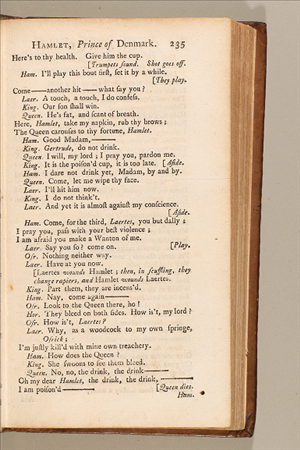 HAMLET, Prince of Denmark. 235
Here's to thy health. Give him the cup.
[Trumpets sound. Shot goes off.
Ham. I'll play this bout first, set it by a while.
[They play.
Come——another hit——what say you?
Laer. A touch, a touch, I do confess.
King. Our son shall win.
Queen. He's fat, and scant of breath.
Here, Hamlet, take my napkin, rub thy brows;
The Queen carouses to thy fortune, Hamlet.
Ham. Good Madam,——
King. Gertrude, do not drink.
Queen. I will, my lord; I pray you, pardon me.
King. It is the poison'd cup, it is too late. [Aside.
Ham. I dare not drink yet, Madam, by and by.
Queen. Come, let me wipe thy face.
Laer. I'll hit him now.
King. I do not think't.
Laer. And yet it is almost against my conscience.
[Aside.
Ham. Come, for the third, Laertes, you but dally;
I pray you, pass with your best violence;
I am afraid you make a Wanton of me.
Laer. Say you so? come on. [Play.
Osr. Nothing neither way.
Laer. Have at you now.
[Laertes wounds Hamlet; then, in scuffling, they
change rapiers, and Hamlet wounds Laertes.
King. Part them, they are incens'd.
Ham. Nay, come again——
Osr. Look to the Queen there, ho!
Hor. They bleed on both sides. How is't, my lord?
Osr. How is't, Laertes?
Laer. Why, as a woodcock to my own springe,
Osrick;
I'm justly kill'd with mine own treachery.
Ham. How does the Queen?
King. She swoons to see them bleed.
Queen. No, no, the drink, the drink——
Oh my dear Hamlet, the drink, the drink,——
I am poison'd—— [Queen dies.
Ham.